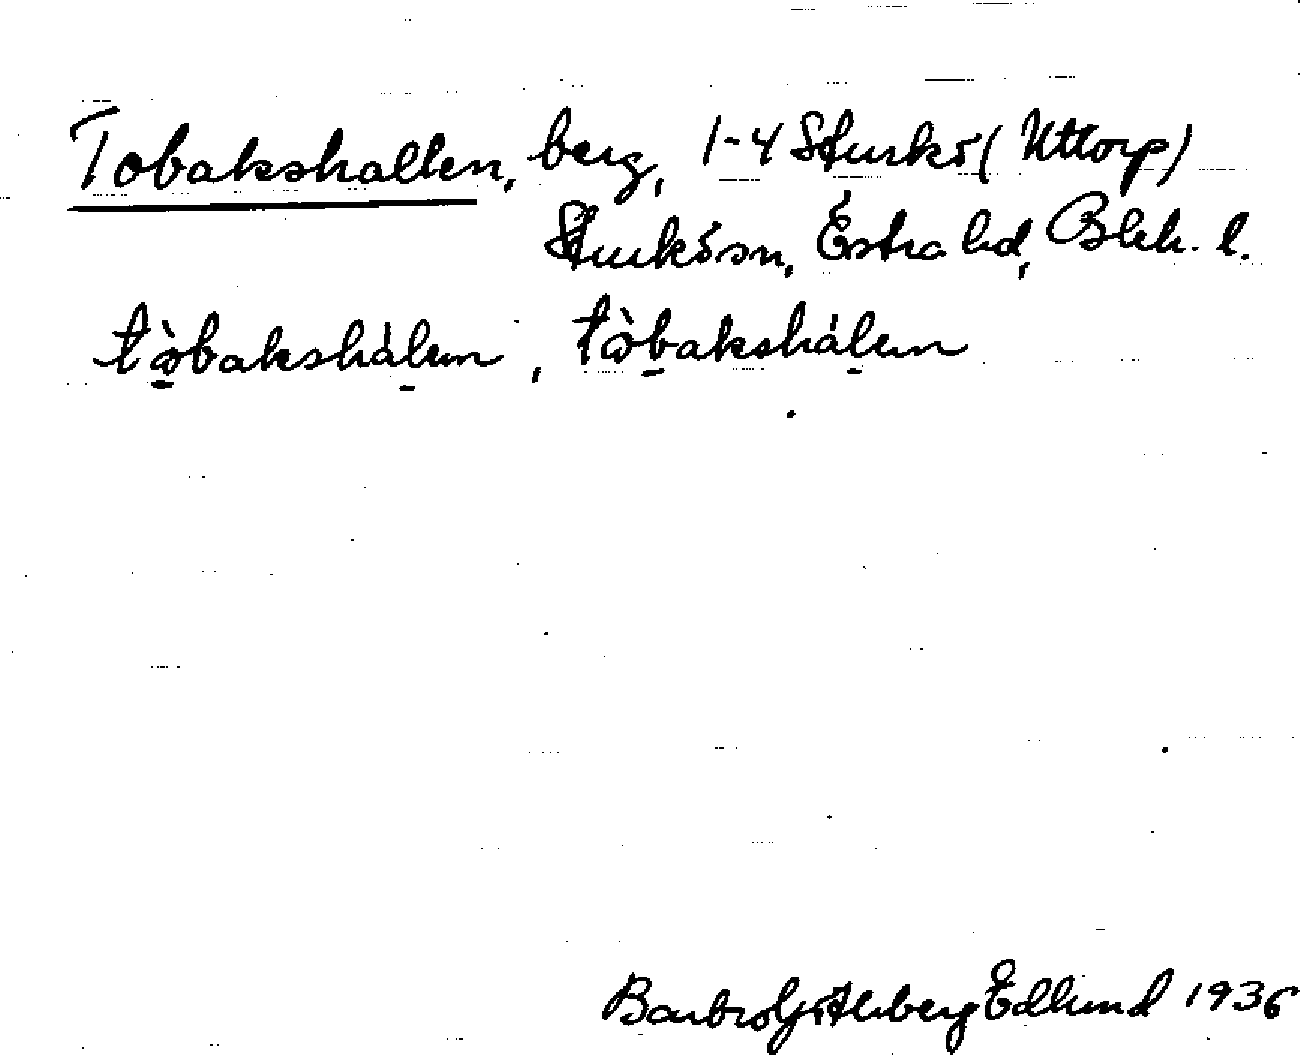 Tobakshallen, berg, 1-4 Sturkö (Uttorp)
Sturkö sn, Östra hd, Blek. l.
tò̱bakshál̠en, tò̱bakshál̠en
Barbro Götlberg Edlund 1936